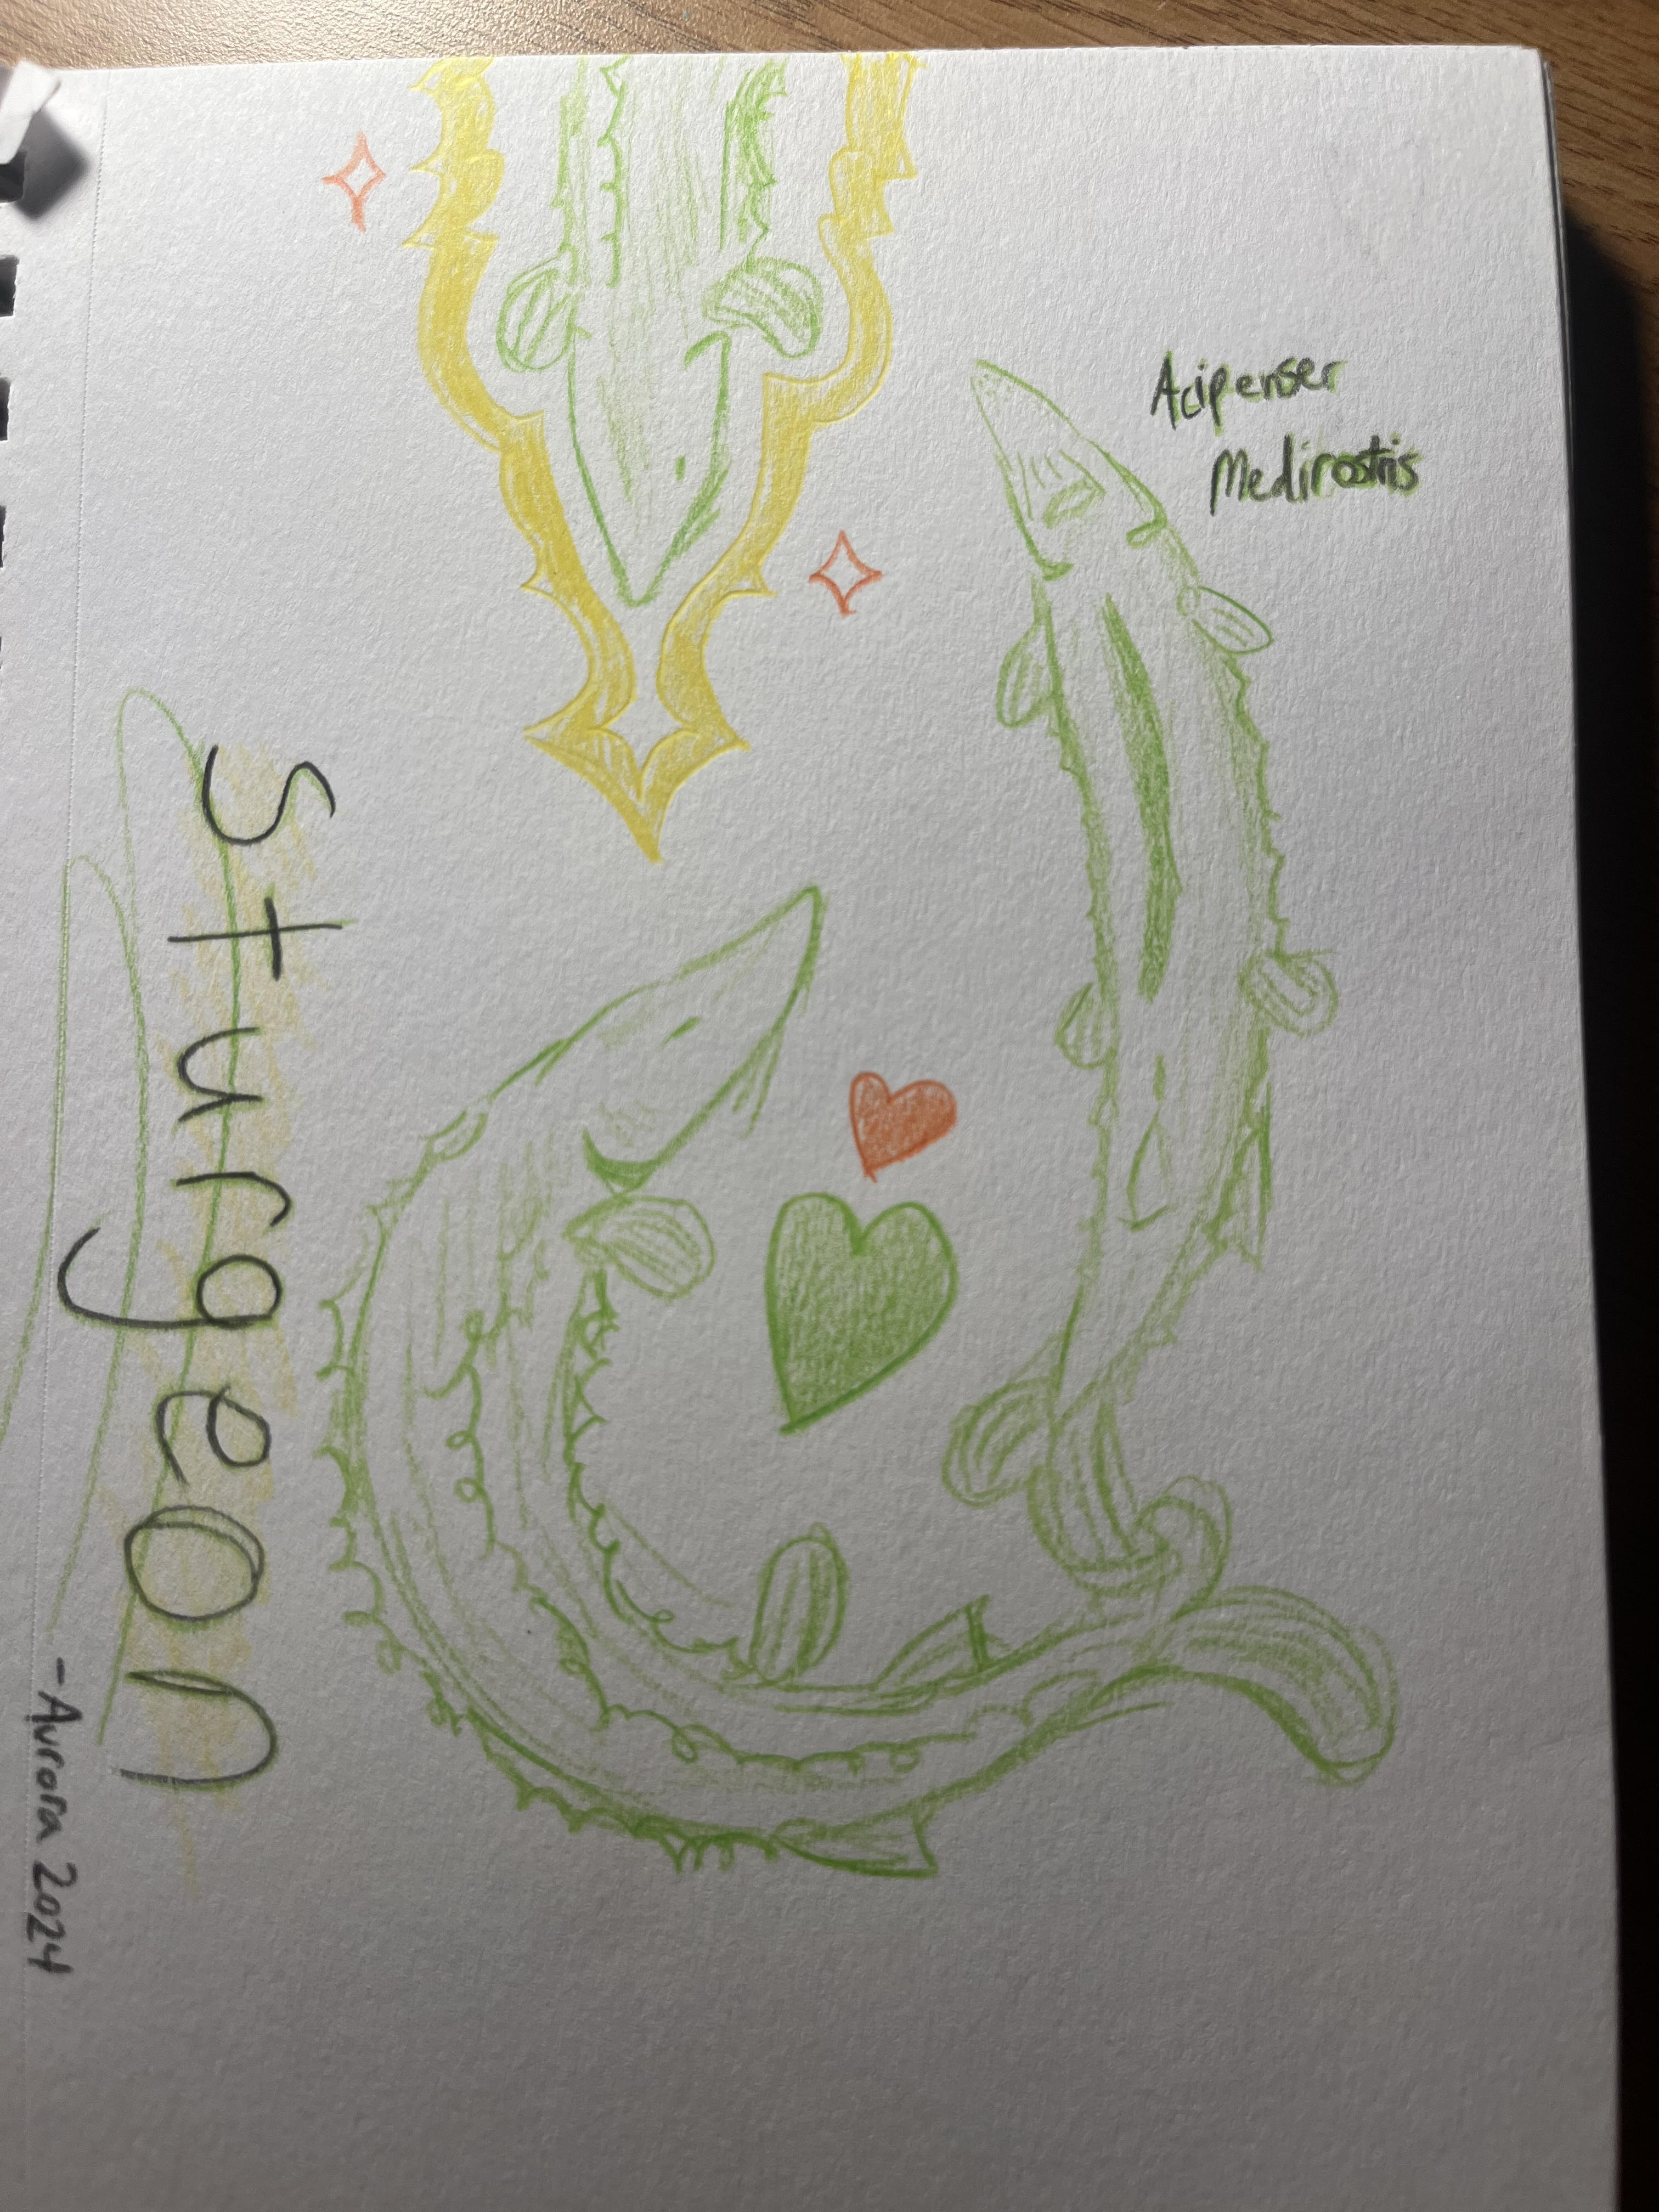 Acipenser
Medirostris
Sturgeon
-Aurora 2024